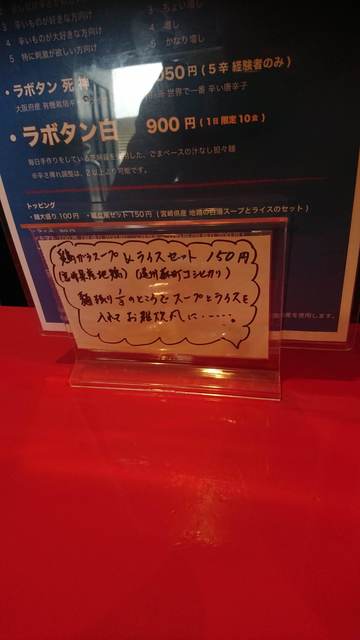 3 辛いものが好きな方向け
4 辛いものが大好きな方向け
5 特に刺激が欲しい方向け
3 ちょい増し
4 増し
5 かなり増し
・ラボタン 死神
950円 (5辛 経験者のみ)
世界で一番 辛い唐辛子
・ラボタン白 900円 (1日限定10食)
ごまベースの汁なし担々麺
※辛さ痺れ調整は、2以上より可能です。
トッピング
・麺大盛り100円 150円 (宮崎県産 地鶏の白湯スープとライスのセット)
鶏ガラスープ & ライスセット 150円
(宮崎県産地鶏) (コシヒカリ)
麺残り 1/3のところでスープとライスを
入れてお雑炊風に・・・・・。
を使用します。